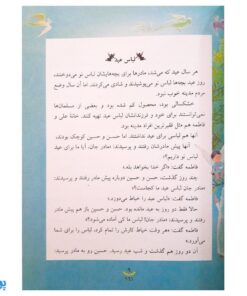 لباس عید
هر سال عید که می‌شد، مادرها برای بچه‌هایشان لباس نو می‌دوختند.
روز عید بچه‌ها لباس نو می‌پوشیدند و شادی می‌کردند، اما آن سال وضع
مردم مدینه خوب نبود.
خشکسالی بود. محصول کم شده بود و بعضی از مسلمان‌ها
نمی‌توانستند برای خود و فرزندانشان لباس عید تهیه کنند. خانهٔ علی و
فاطمه هم مثل فقیرترین افراد مدینه بود.
آنها هم لباسی برای عید نداشتند. اما حسن و حسین کوچک بودند.
آنها پیش مادرشان رفتند و پرسیدند: مادر جان، آیا ما برای عید
لباس نو داریم؟»
فاطمه گفت: «اگر خدا بخواهد بله.»
چند روز گذشت، حسن و حسین دوباره پیش مادر رفتند و پرسیدند:
«مادر جان! لباس عید ما کجاست؟»
فاطمه گفت: «لباس عید را خیاط می‌دوزد.»
حالا فقط دو روز به عید مانده بود. حسن و حسین باز هم پیش مادر
رفتند و پرسیدند: «مادر جان! لباس ما کی آماده می‌شود؟»
فاطمه گفت: «هر وقت خیاط کارش را تمام کرد، لباس را برای شما
می‌آورد.»
آن دو روز هم گذشت و شب عید رسید. حسین رو به مادر پرسید: